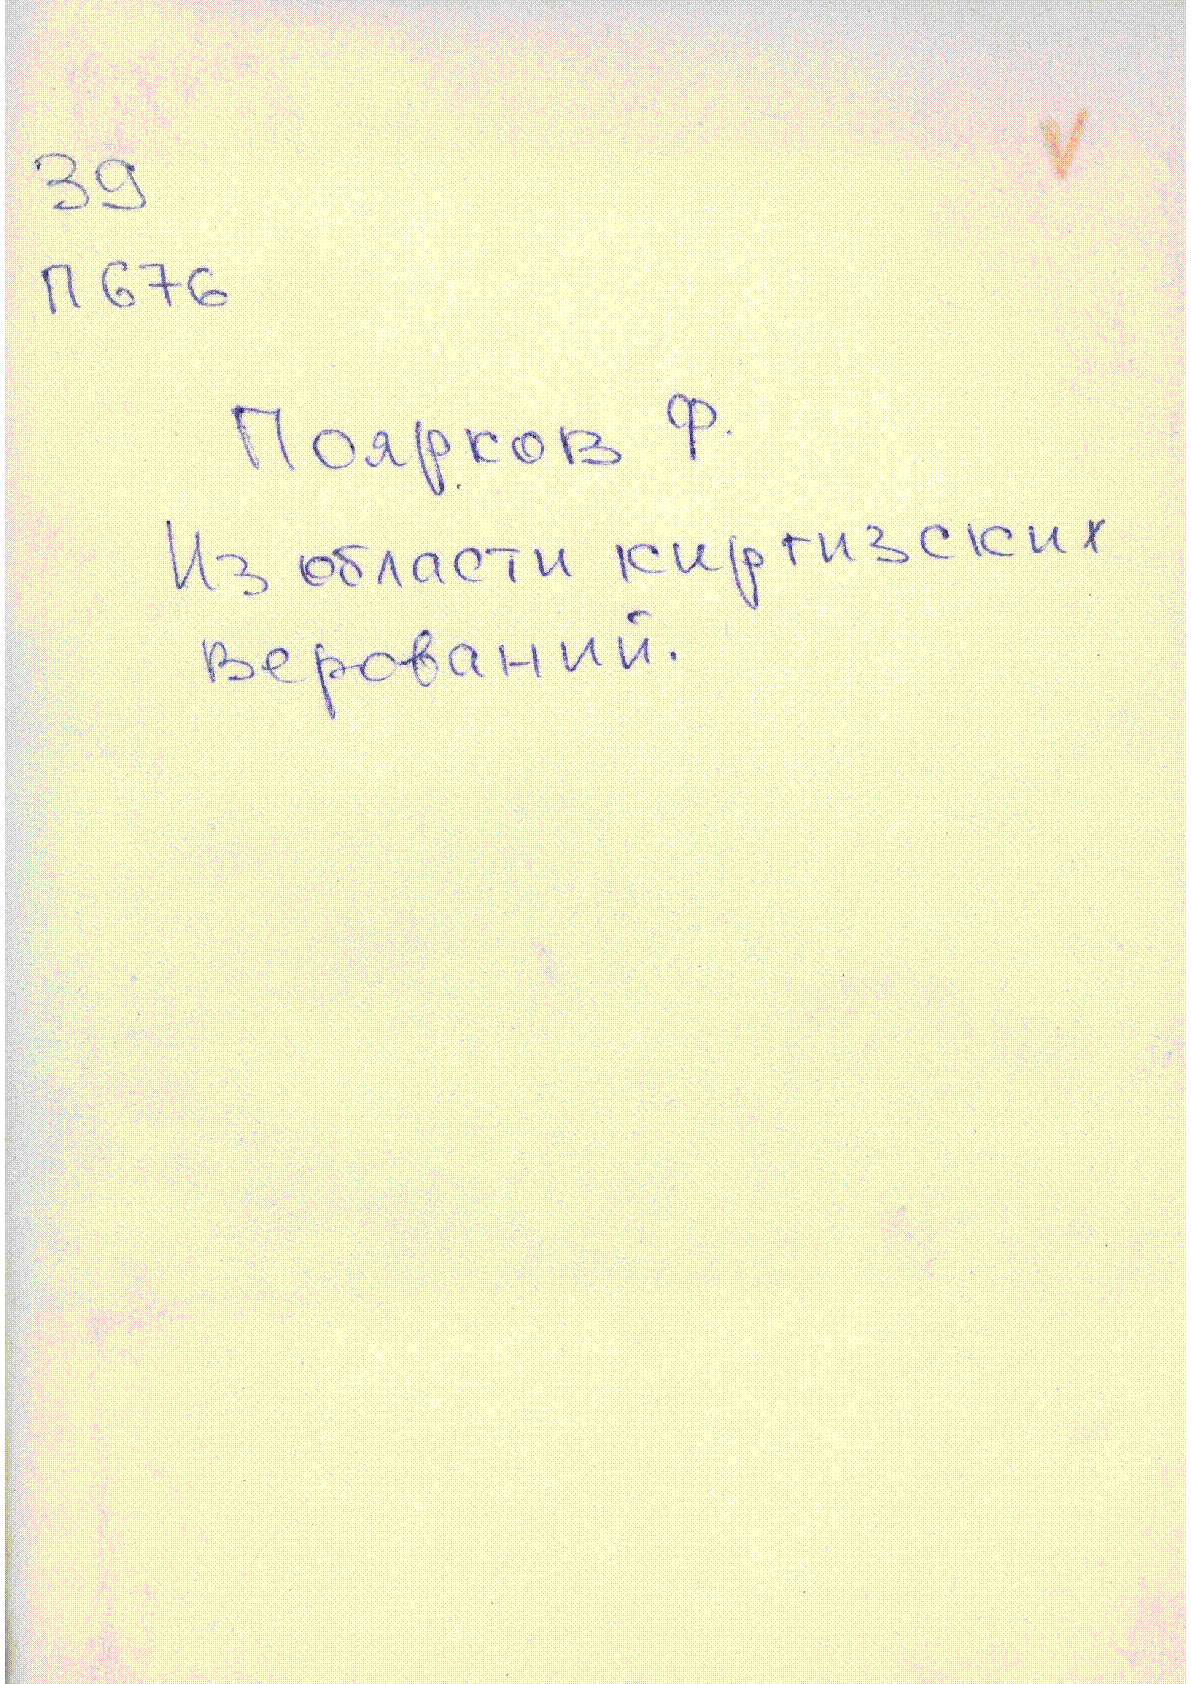 V
39
П 676
Поярков Ф.
Из области киргизских
верований.